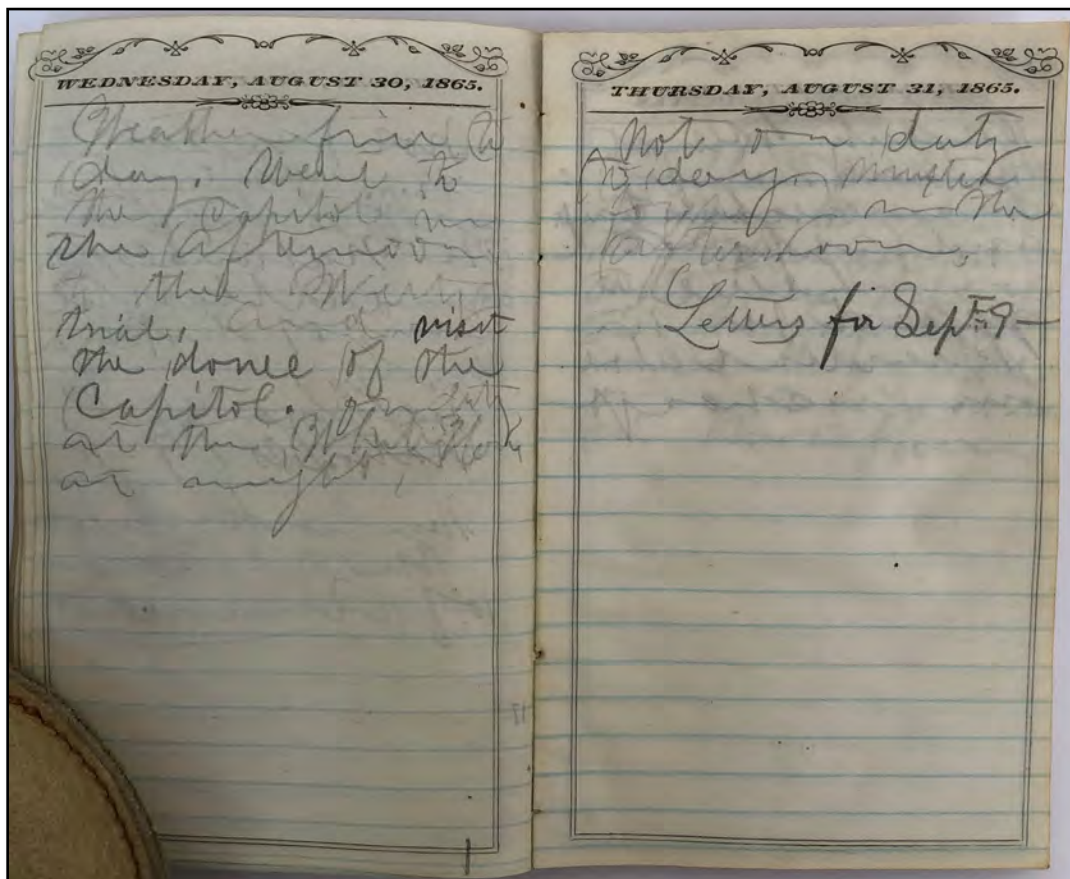 WEDNESDAY, AUGUST 30, 1865.
Weather fine to
day. Went to
the Capitol in
the afternoon
to the
trial, and visit
the dome of the
Capitol.
at the
at night,
THURSDAY, AUGUST 31, 1865.
Not on duty
to day.
in the
afternoon,
Letters for Sept. 9